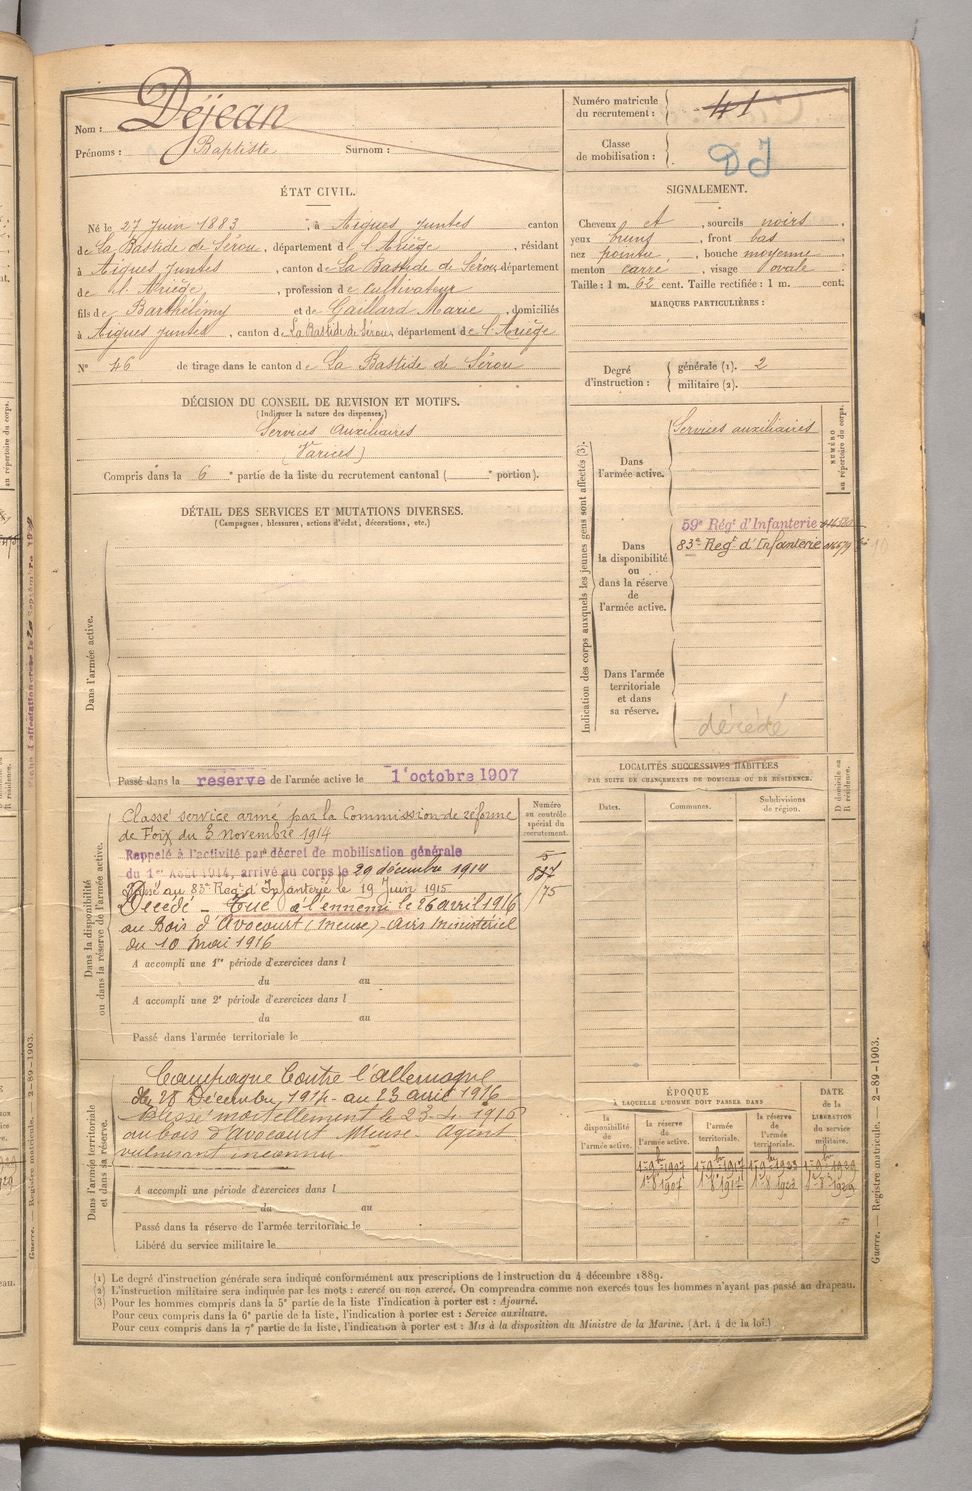 Nom : Déjean
Prénoms : Baptiste Surnom :
Numéro matricule du recrutement : 41
Classe de mobilisation :
DJ
ÉTAT CIVIL.
Né le 27 Juin 1883, à Aigues Juntes canton
de La Bastide de Sérou, département de l'Ariège, résidant
à Aigues Juntes, canton de La Bastide de Sérou, département
de l'Ariège, profession de cultivateur
fils de Barthélémy et de Gaillard Marie, domiciliés
à Aigues Juntes, canton de La Bastide de Sérou, département de l'Ariège
N° 46 de tirage dans le canton de La Bastide de Sérou
SIGNALEMENT.
Cheveux et, sourcils noirs,
yeux bruns, front bas,
nez pointu, bouche moyenne,
menton carré, visage ovale
Taille : 1 m. 62 cent. Taille rectifiée : 1 m. cent.
MARQUES PARTICULIÈRES :
Degré d'instruction : générale (1). 2
militaire (2).
DÉCISION DU CONSEIL DE REVISION ET MOTIFS.
(Indiquer la nature des dispenses.)
Services Auxiliaires
(Varices)
Compris dans la 6e partie de la liste du recrutement cantonal ( e portion).
DÉTAIL DES SERVICES ET MUTATIONS DIVERSES.
(Campagnes, blessures, actions d'éclat, décorations, etc.)
Dans l'armée active.
Passé dans la reserve de l'armée active le 1er octobre 1907
Indication des corps auxquels les jeunes gens sont affectés (3).
NUMÉRO au répertoire du corps.
Dans l'armée active.
Services auxiliaires
Dans la disponibilité ou dans la réserve de l'armée active.
59e Régt d'Infanterie
83e Regt d'Infanterie
Dans l'armée territoriale et dans sa réserve.
décédé
LOCALITÉS SUCCESSIVES HABITÉES
PAR SUITE DE CHANGEMENTS DE DOMICILE OU DE RÉSIDENCE.
Dates. Communes. Subdivisions de région.
D domicile ou R résidence.
Dans la disponibilité ou dans la réserve de l'armée active.
Numéro au contrôle spécial du recrutement.
Classé service armé par la Commission de réforme
de Foix du 3 novembre 1914
Rappelé à l'activité par décret de mobilisation générale
du 1er Août 1914, arrivé au corps le 29 décembre 1914
Passé au 83e Regt d'Infanterie le 19 Juin 1915
Décédé - Tué à l'ennemi le 26 avril 1916
au Bois d'Avocourt (Meuse) - Avis Ministériel
du 10 Mai 1916
5
/75
A accompli une 1re période d'exercices dans l
du au
A accompli une 2e période d'exercices dans l
du au
Passé dans l'armée territoriale le
Dans l'armée territoriale et dans sa réserve.
Campagne Contre l'Allemagne
du 28 Décembre 1914 au 23 avril 1916
Blessé mortellement le 23-4-1916
au bois d'Avocourt Meuse - Agent
vulnérant inconnu
A accompli une période d'exercices dans l
du au
Passé dans la réserve de l'armée territoriale le
Libéré du service militaire le
ÉPOQUE
À LAQUELLE L'HOMME DOIT PASSER DANS
la disponibilité de l'armée active. la réserve de l'armée active. l'armée territoriale. la réserve de l'armée territoriale.
DATE de la LIBÉRATION du service militaire.
(1) Le degré d'instruction générale sera indiqué conformément aux prescriptions de l'instruction du 4 décembre 1889.
(2) L'instruction militaire sera indiquée par les mots : exercé ou non exercé. On comprendra comme non exercés tous les hommes n'ayant pas passé au drapeau.
(3) Pour les hommes compris dans la 5e partie de la liste l'indication à porter est : Ajourné.
Pour ceux compris dans la 6e partie de la liste, l'indication à porter est : Service auxiliaire.
Pour ceux compris dans la 7e partie de la liste, l'indication à porter est : Mis à la disposition du Ministre de la Marine. (Art. 4 de la loi.)
Guerre. — Registre matricule. — 2-89-1903.